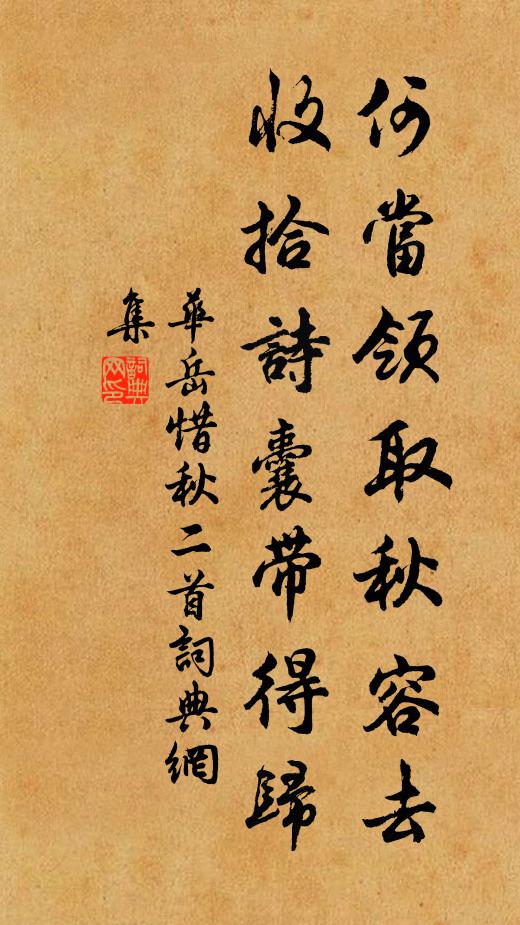 何當領取秋容去
收拾詩囊帶得歸
華岳惜秋二首詞典網
集
詞典
网印